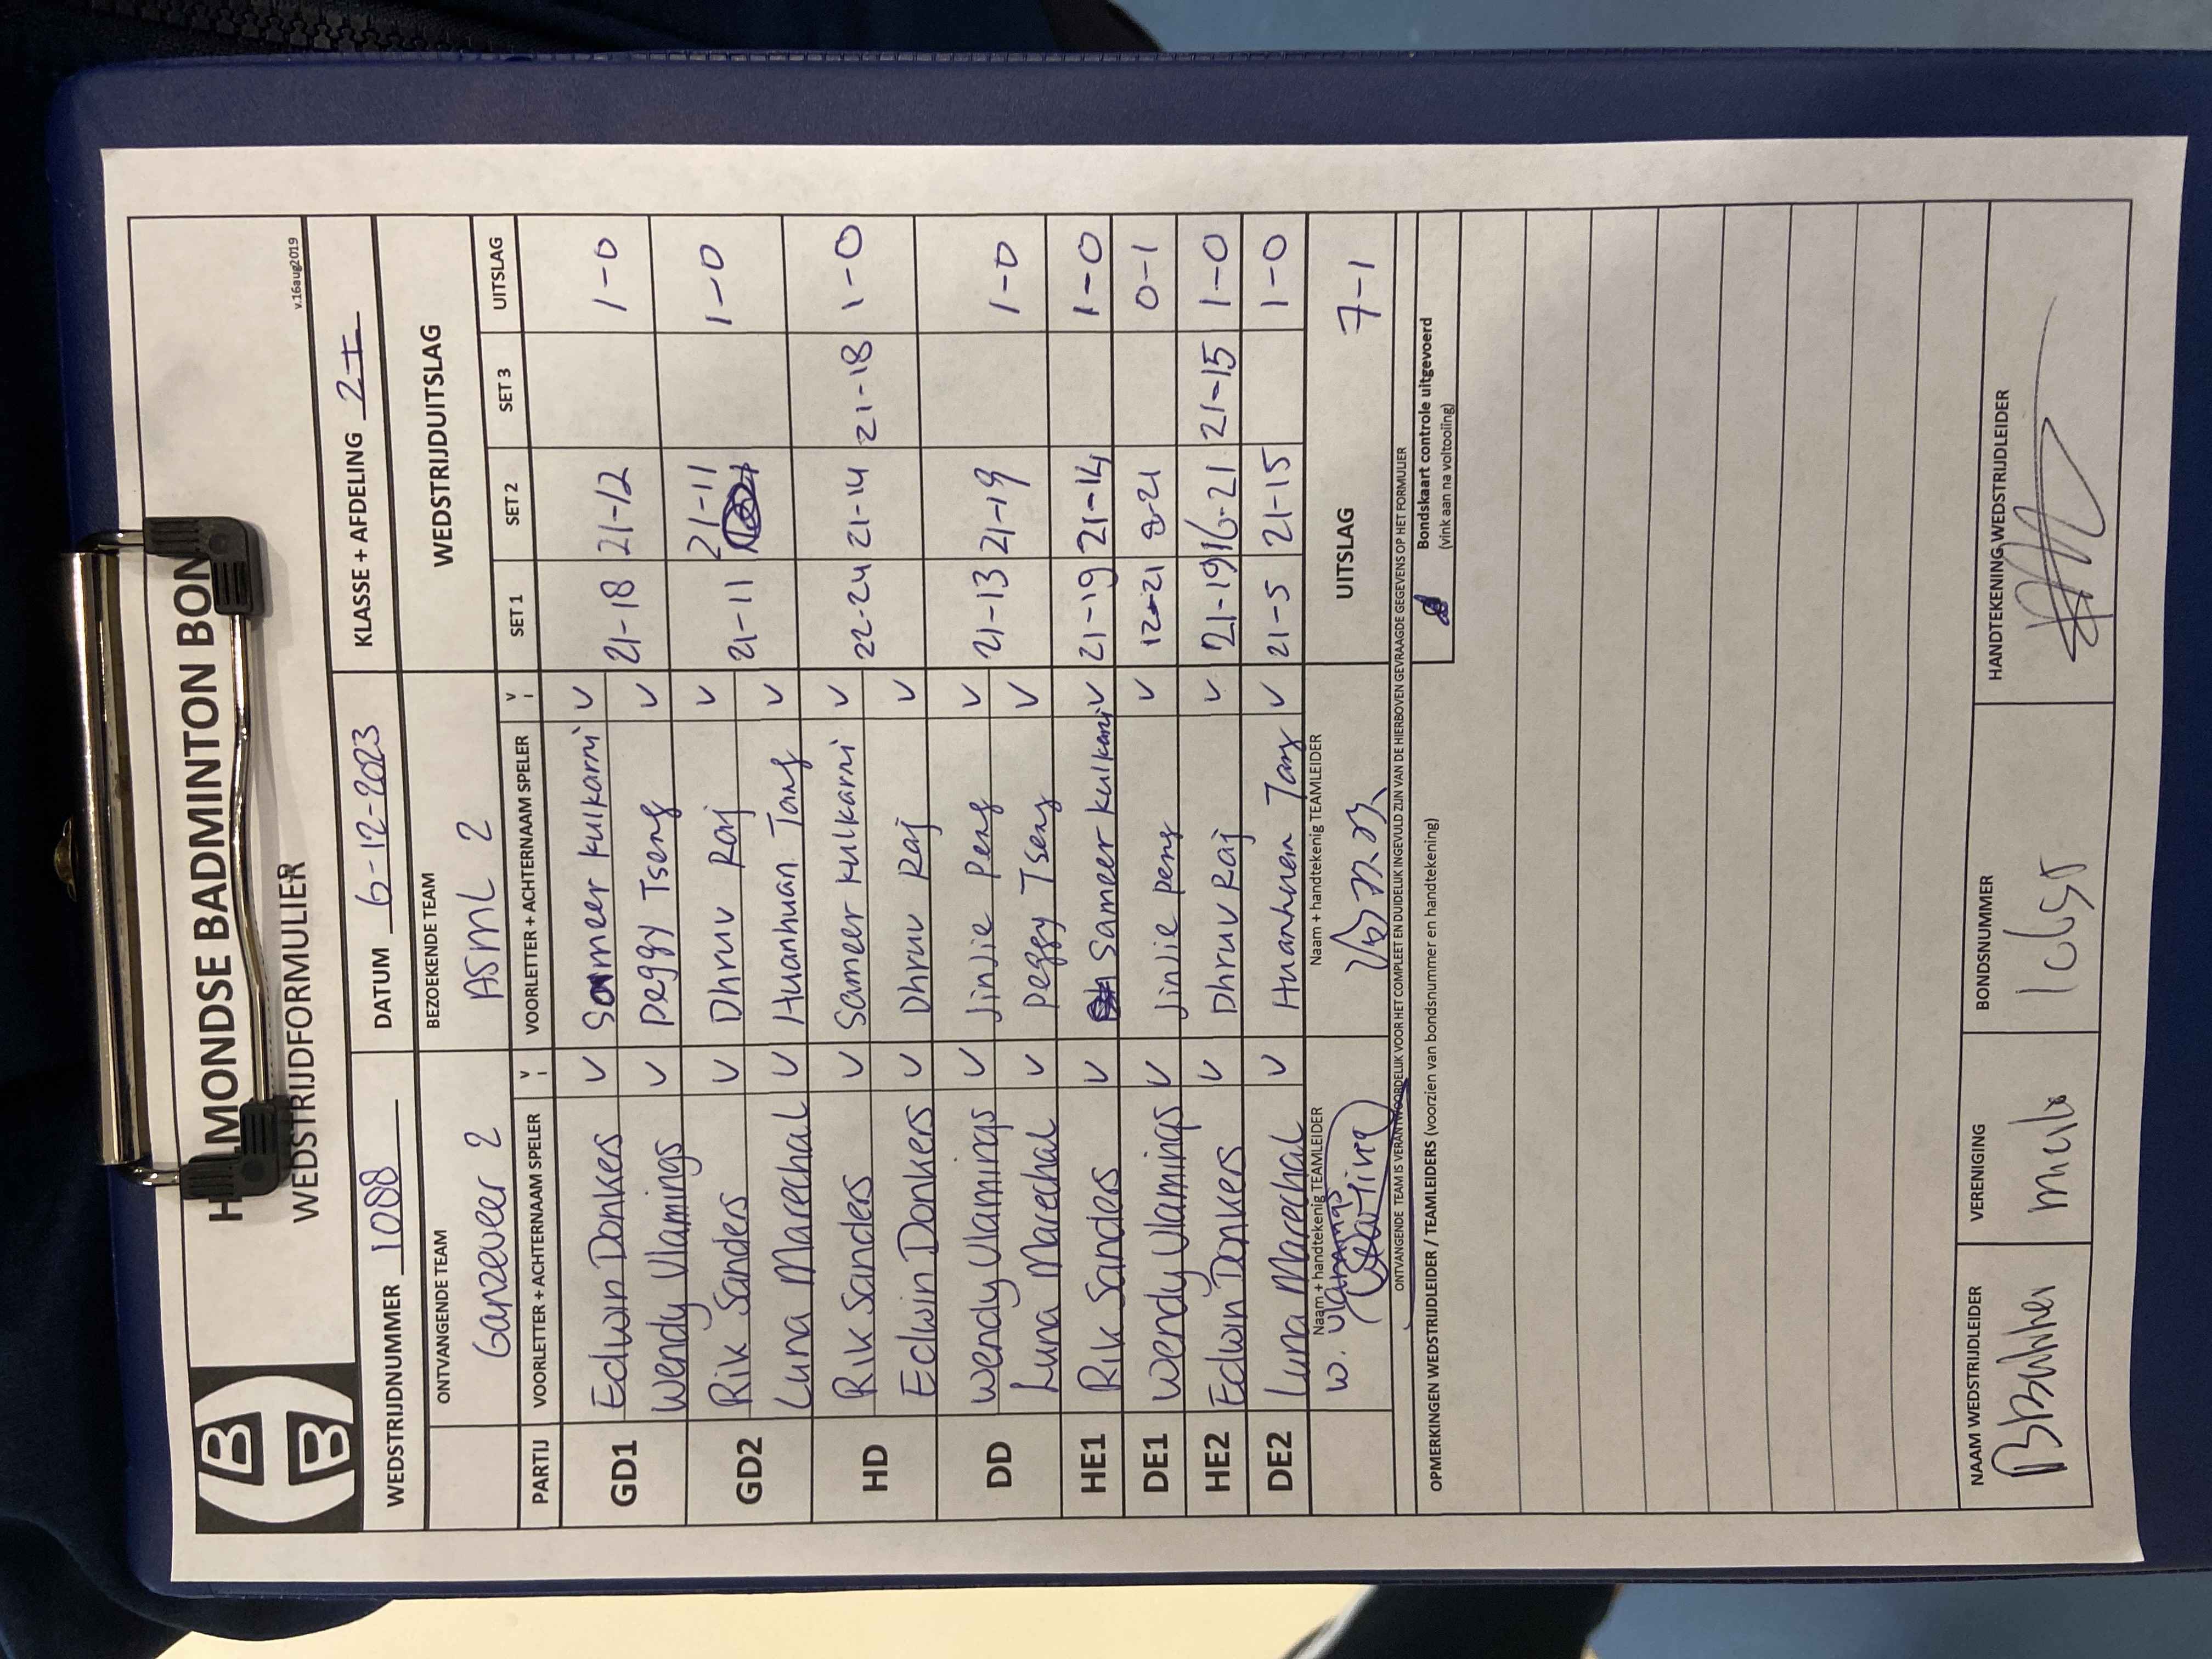 BB
H MONDSE BADMINTON BON
WEDSTRIJDFORMULIER
v.16aug2019
WEDSTRIJDNUMMER 1088 DATUM 6-12-2023 KLASSE + AFDELING 2
ONTVANGENDE TEAM BEZOEKENDE TEAM WEDSTRIJDUITSLAG
Ganzeveer 2 ASML 2
PARTIJ VOORLETTER + ACHTERNAAM SPELER V VOORLETTER + ACHTERNAAM SPELER V SET 1 SET 2 SET 3 UITSLAG
GD1 Edwin Donkers V Sameer Kulkarni V 21-18 21-12 1-0
Wendy Vlamings V Peggy Tseng V
GD2 Rik Sanders V Dhruv Raj V 21-11 21-11 1-0
Luna Marechal V Huanhuan Tang V
HD Rik Sanders V Sameer Kulkarni V 22-24 21-14 21-18 1-0
Edwin Donkers V Dhruv Raj V
DD Wendy Vlamings V Jinjie Peng V 21-13 21-19 1-0
Luna Marechal V Peggy Tseng V
HE1 Rik Sanders V Sameer Kulkarni V 21-19 21-14 1-0
DE1 Wendy Vlamings V Jinjie Peng V 12-21 8-21 0-1
HE2 Edwin Donkers V Dhruv Raj V 21-19 16-21 21-15 1-0
DE2 Luna Marechal V Huanhuan Tang V 21-5 21-15 1-0
Naam + handtekenig TEAMLEIDER Naam + handtekenig TEAMLEIDER UITSLAG 7-1
W. Vlamings
ONTVANGENDE TEAM IS VERANTWOORDELIJK VOOR HET COMPLEET EN DUIDELIJK INGEVULD ZIJN VAN DE HIERBOVEN GEVRAAGDE GEGEVENS OP HET FORMULIER
OPMERKINGEN WEDSTRIJDLEIDER / TEAMLEIDERS (voorzien van bondsnummer en handtekening)
Bondskaart controle uitgevoerd
(vink aan na voltooling)
NAAM WEDSTRIJDLEIDER VERENIGING BONDSNUMMER HANDTEKENING WEDSTRIJDLEIDER